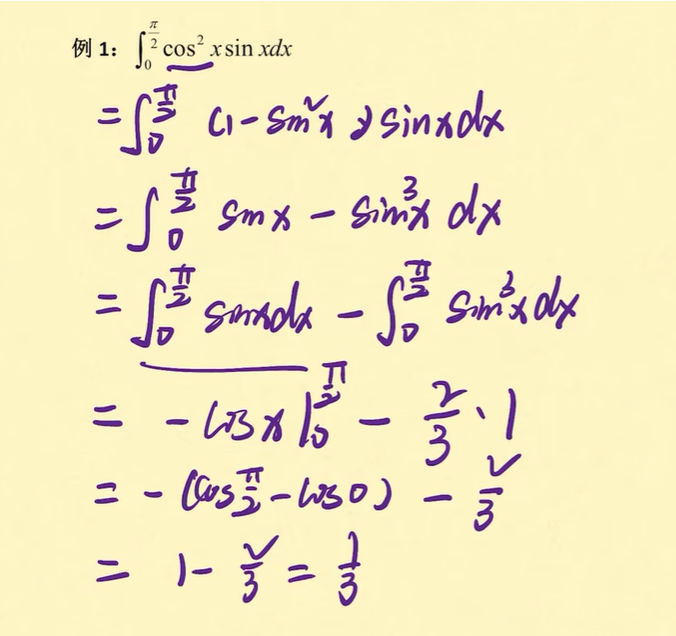 例 1： ∫₀^(π/2) cos² x sin xdx
= ∫₀^(π/2) (1 - sin²x) sinxdx
= ∫₀^(π/2) sinx - sin³x dx
= ∫₀^(π/2) sinxdx - ∫₀^(π/2) sin³xdx
= - cosx |₀^(π/2) - 2/3 · 1
= - (cos π/2 - cos0) - 2/3
= 1 - 2/3 = 1/3